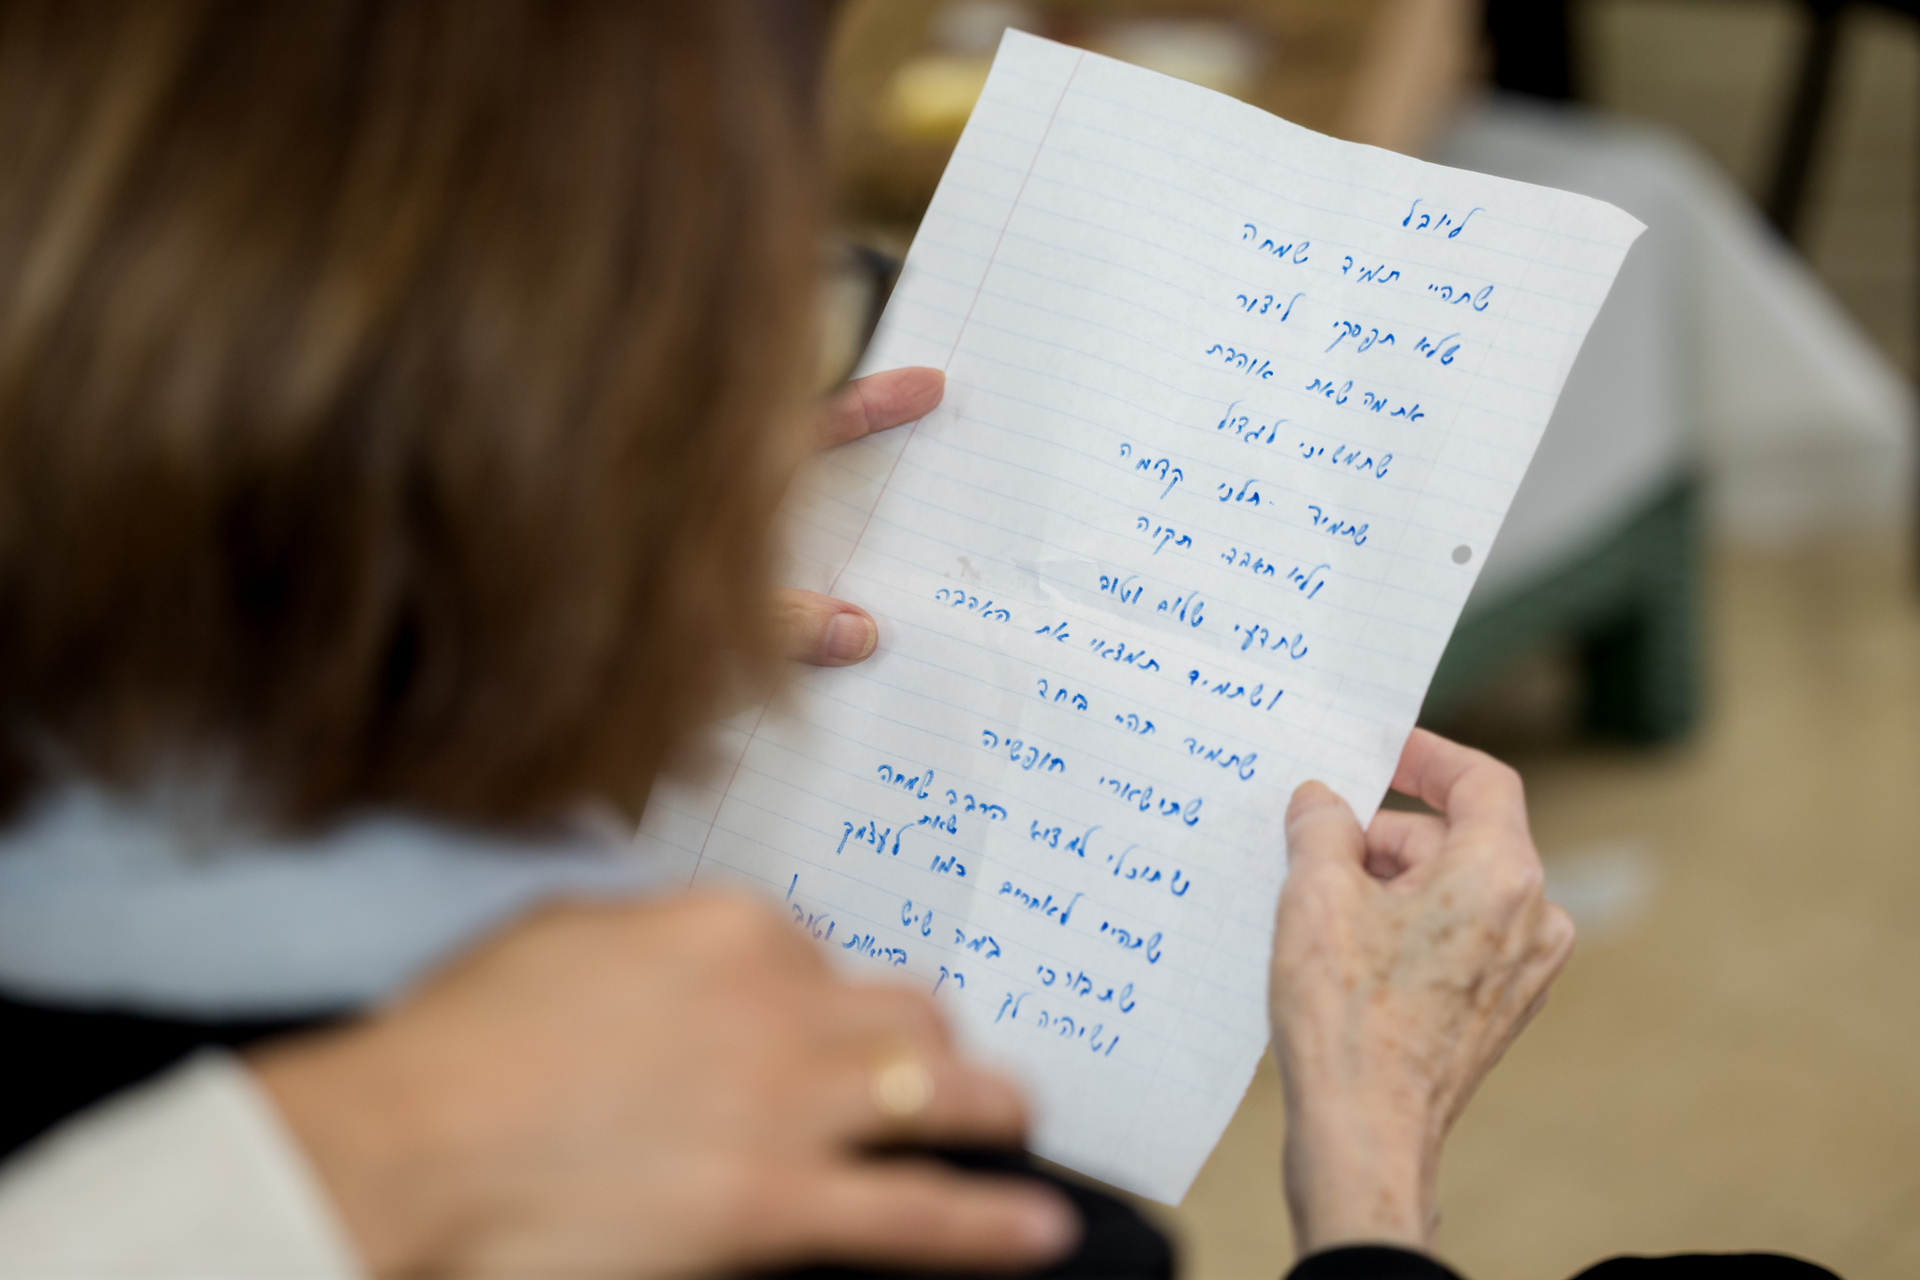 ליובל
שתהיי תמיד שמחה
שלא תפסקי ליצור
את מה שאת אוהבת
שתמשיכי לגדול
שתמיד תלכי קדימה
ולא תאבדי תקוה
שתדעי שלום וטוב
ושתמיד תמצאי את האהבה
שתמיד תהיי ביחד
שתישארי חופשיה
שתוכלי למצוא הרבה שמחה
שתהיי לאחרים כמו שאת לעצמך
שתבורכי במה שיש
ושיהיה לך רק בריאות וטוב!